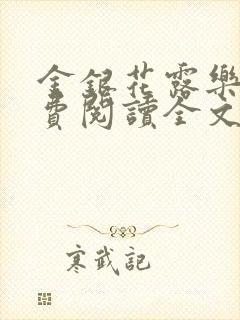 金銀花露樂
費閱讀全文
寒武記